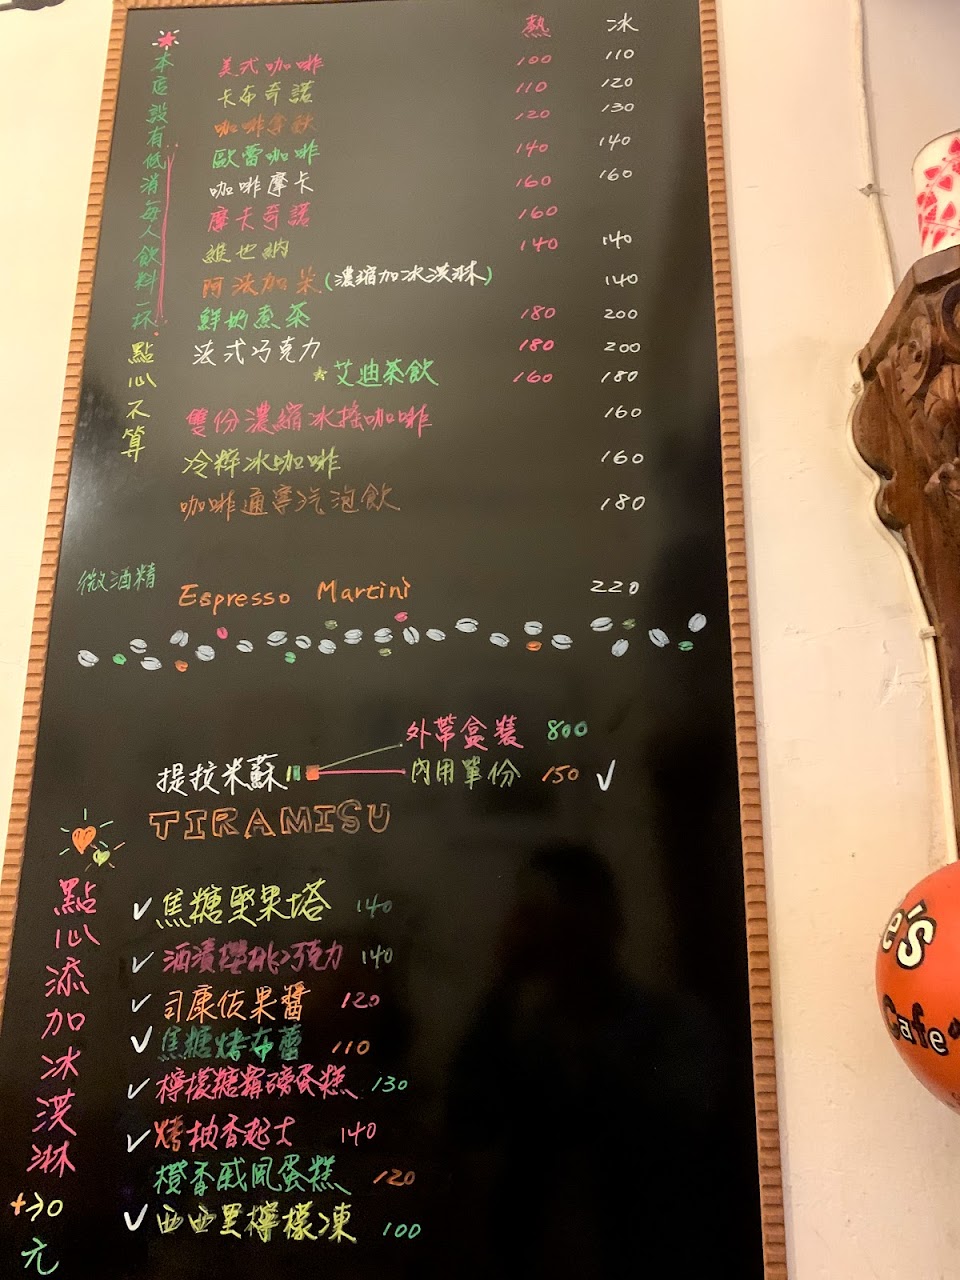 熱 冰
本店設有低消每人飲料一杯
點心不算
美式咖啡 100 110
卡布奇諾 110 120
咖啡拿鐵 120 130
歐蕾咖啡 140 140
咖啡摩卡 160 160
摩卡奇諾 160
維也納 140 140
阿法加朵(濃縮加冰淇淋) 140
鮮奶煮茶 180 200
法式巧克力 180 200
艾迪茶飲 160 180
雙份濃縮冰搖咖啡 160
冷粹冰咖啡 160
咖啡通寧汽泡飲 180
微酒精 Espresso Martini 220
外帶盒裝 800
提拉米蘇 內用單份 150
TIRAMISU
點心添加冰淇淋
元
焦糖堅果塔 140
酒漬櫻桃巧克力 140
司康佐果醬 120
焦糖烤布蕾 110
檸檬糖霜磅蛋糕 130
烤柚香起士 140
橙香戚風蛋糕 120
西西里檸檬凍 100
e's
Cafe